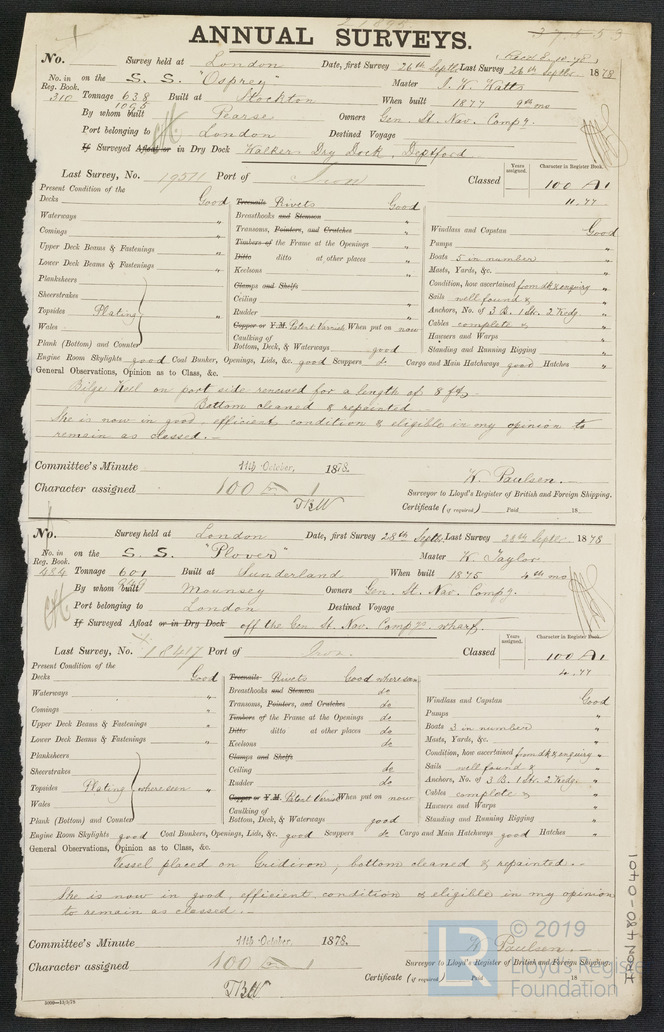 ANNUAL SURVEYS.
No. Survey held at London Date, first Survey 26th Septr. Last Survey 26th Septr 1878
No. in Reg. Book. on the S. S. "Osprey" Master J. W. Watts
310 Tonnage 638 Built at Stockton When built 1877 9th mo
1095
By whom built Pearse Owners Gen. St. Nav. Compy.
Port belonging to London Destined Voyage
If Surveyed Afloat or in Dry Dock Walkers Dry Dock, Deptford
Last Survey, No. 19571 Port of Iron Classed Years assigned. Character in Register Book.
100 A1
11.77
Present Condition of the
Decks Good Treenails Rivets Good
Waterways " Breasthooks and Stemson " Windlass and Capstan Good
Comings " Transoms, Pointers, and Crutches " Pumps "
Upper Deck Beams & Fastenings " Timbers of the Frame at the Openings " Boats 5 in number "
Lower Deck Beams & Fastenings " Ditto ditto at other places " Masts, Yards, &c. "
Planksheers Keelsons " Condition, how ascertained from dk & enquiry
Sheerstrakes Clamps and Shelfs Sails well found & "
Topsides Plating " Ceiling " Anchors, No. of 3 B. 1 St. 2 Kedg.
Wales Rudder " Cables complete "
Plank (Bottom) and Counter Copper or Y.M. Patent Varnish When put on now Hawsers and Warps "
Caulking of Bottom, Deck, & Waterways good Standing and Running Rigging "
Engine Room Skylights good Coal Bunker, Openings, Lids, &c. good Scuppers do Cargo and Main Hatchways good Hatches "
General Observations, Opinion as to Class, &c.
Bilge Keel on port side renewed for a length of 8 ft.
Bottom cleaned & repainted
She is now in good, efficient condition & eligible in my opinion to
remain as classed.
Committee's Minute 11th October, 1878.
W. Paulsen.
Character assigned 100 A 1
Surveyor to Lloyd's Register of British and Foreign Shipping.
TBW
Certificate (if required) Paid 18
No. Survey held at London Date, first Survey 28th Septr. Last Survey 28th Septr 1878
No. in Reg. Book. on the S. S. "Plover" Master W. Taylor
484 Tonnage 601 Built at Sunderland When built 1875 4th mo
949
By whom built Mounsey Owners Gen. St. Nav. Compy.
Port belonging to London Destined Voyage
If Surveyed Afloat or in Dry Dock off the Gen St. Nav. Compys. wharf.
Last Survey, No. 18417 Port of Iron Classed Years assigned. Character in Register Book.
100 A1
4.77
Present Condition of the
Decks Good Treenails Rivets Good where seen
Waterways " Breasthooks and Stemson do Windlass and Capstan Good
Comings " Transoms, Pointers, and Crutches do Pumps "
Upper Deck Beams & Fastenings " Timbers of the Frame at the Openings do Boats 3 in number "
Lower Deck Beams & Fastenings " Ditto ditto at other places do Masts, Yards, &c. "
Planksheers Keelsons do Condition, how ascertained from dk & enquiry
Sheerstrakes Clamps and Shelfs Sails well found & "
Topsides Plating where seen Ceiling do Anchors, No. of 3 B. 1 St. 2 Kedge "
Wales Rudder do Cables complete & "
Plank (Bottom) and Counter Copper or Y.M. Patent Varnish When put on now Hawsers and Warps "
Caulking of Bottom, Deck, & Waterways good Standing and Running Rigging "
Engine Room Skylights good Coal Bunkers, Openings, Lids, &c. good Scuppers do Cargo and Main Hatchways good Hatches "
General Observations, Opinion as to Class, &c.
Vessel placed on Gridiron, bottom cleaned & repainted.
She is now in good, efficient condition & eligible in my opinion
to remain as classed.
Committee's Minute 11th October, 1878.
W. Paulsen.
Character assigned 100 A 1
Surveyor to Lloyd's Register of British and Foreign Shipping.
TBW
Certificate (if required) Paid 18
IRON 480-0401
LR © 2019
Lloyd's Register
Foundation